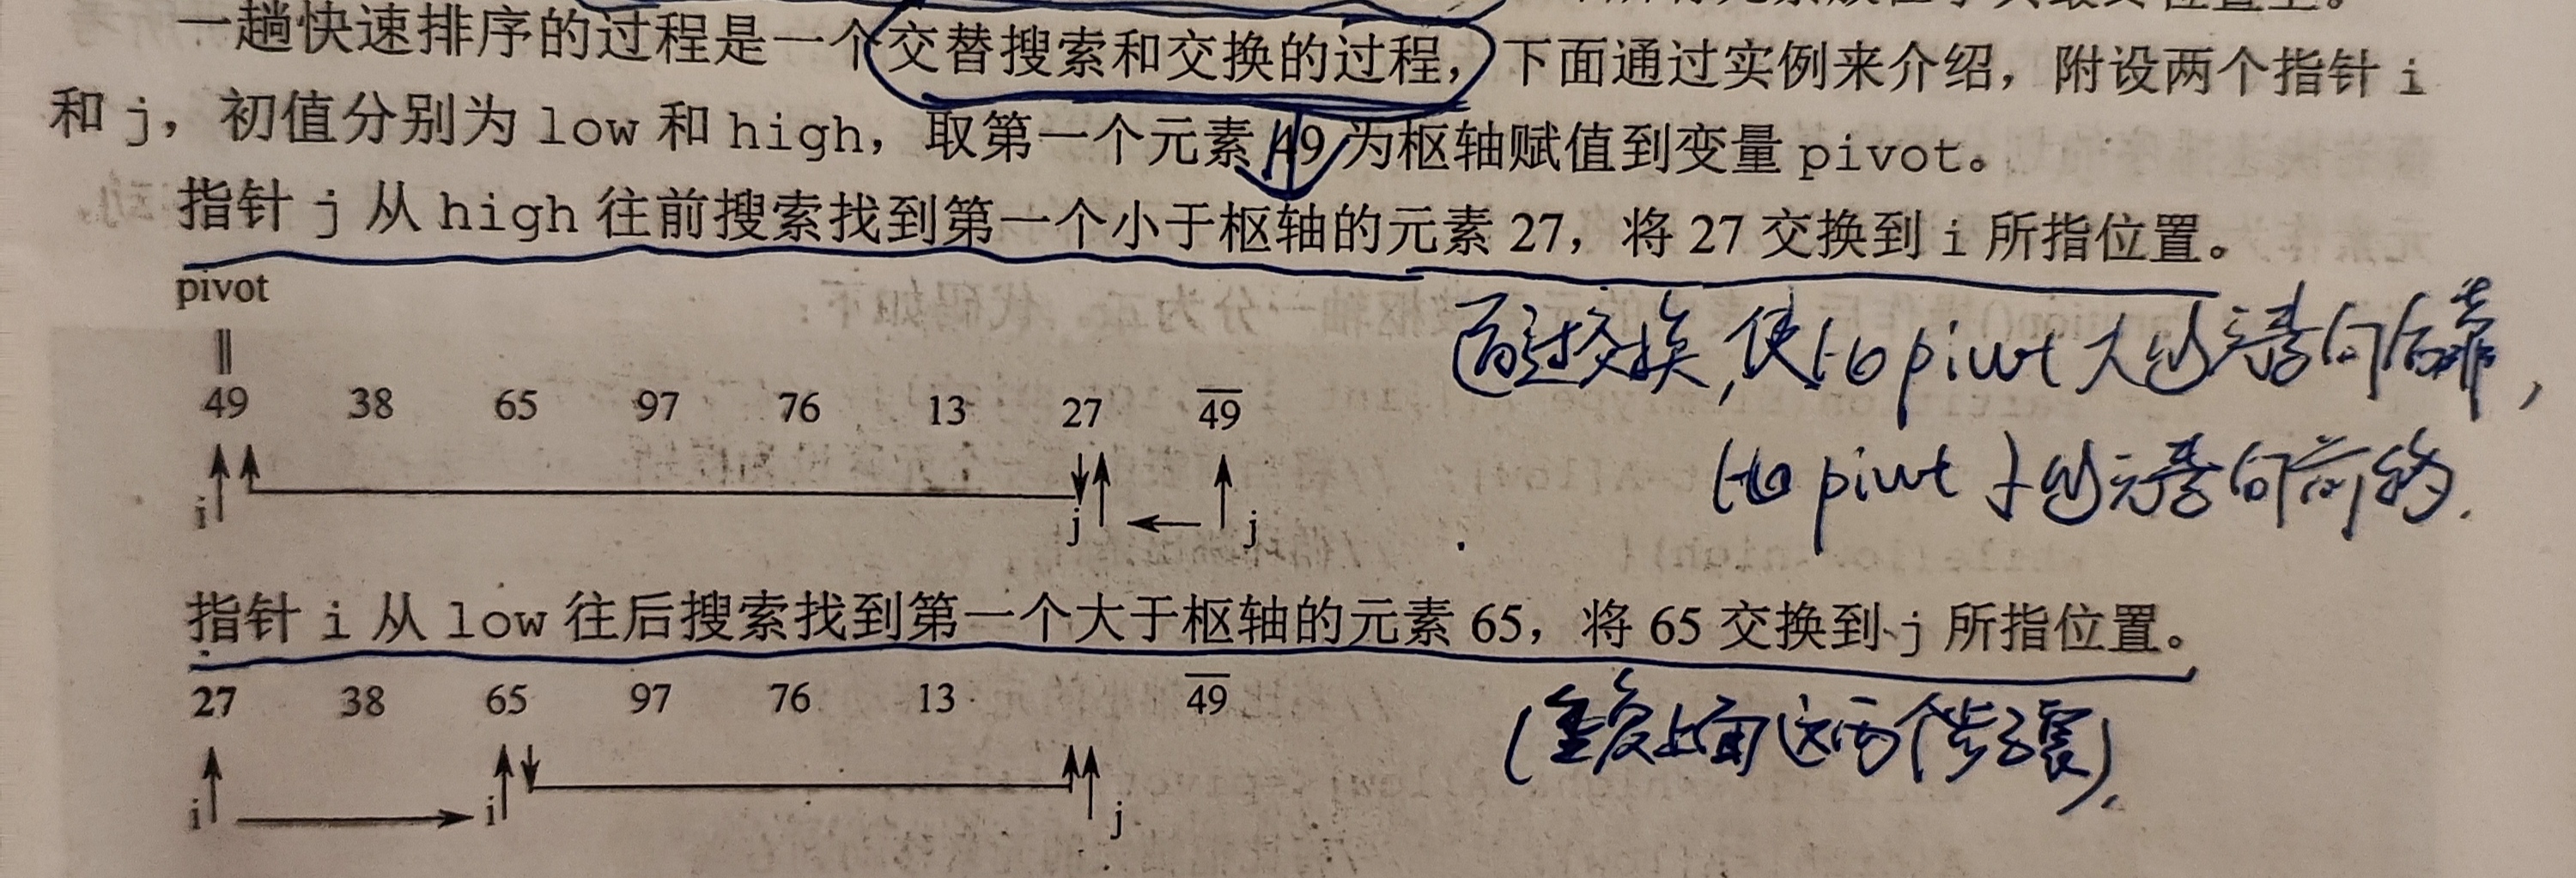 一趟快速排序的过程是一个交替搜索和交换的过程，下面通过实例来介绍，附设两个指针 i
和 j，初值分别为 low 和 high，取第一个元素 49 为枢轴赋值到变量 pivot。
指针 j 从 high 往前搜索找到第一个小于枢轴的元素 27，将 27 交换到 i 所指位置。
pivot
49 38 65 97 76 13 27 4̅9̅
i j j
通过交换，使比 pivot 大的元素向后靠，
比 pivot 小的元素向前移.
指针 i 从 low 往后搜索找到第一个大于枢轴的元素 65，将 65 交换到 j 所指位置。
27 38 65 97 76 13 4̅9̅
i i j
(重复上面这两个步骤).